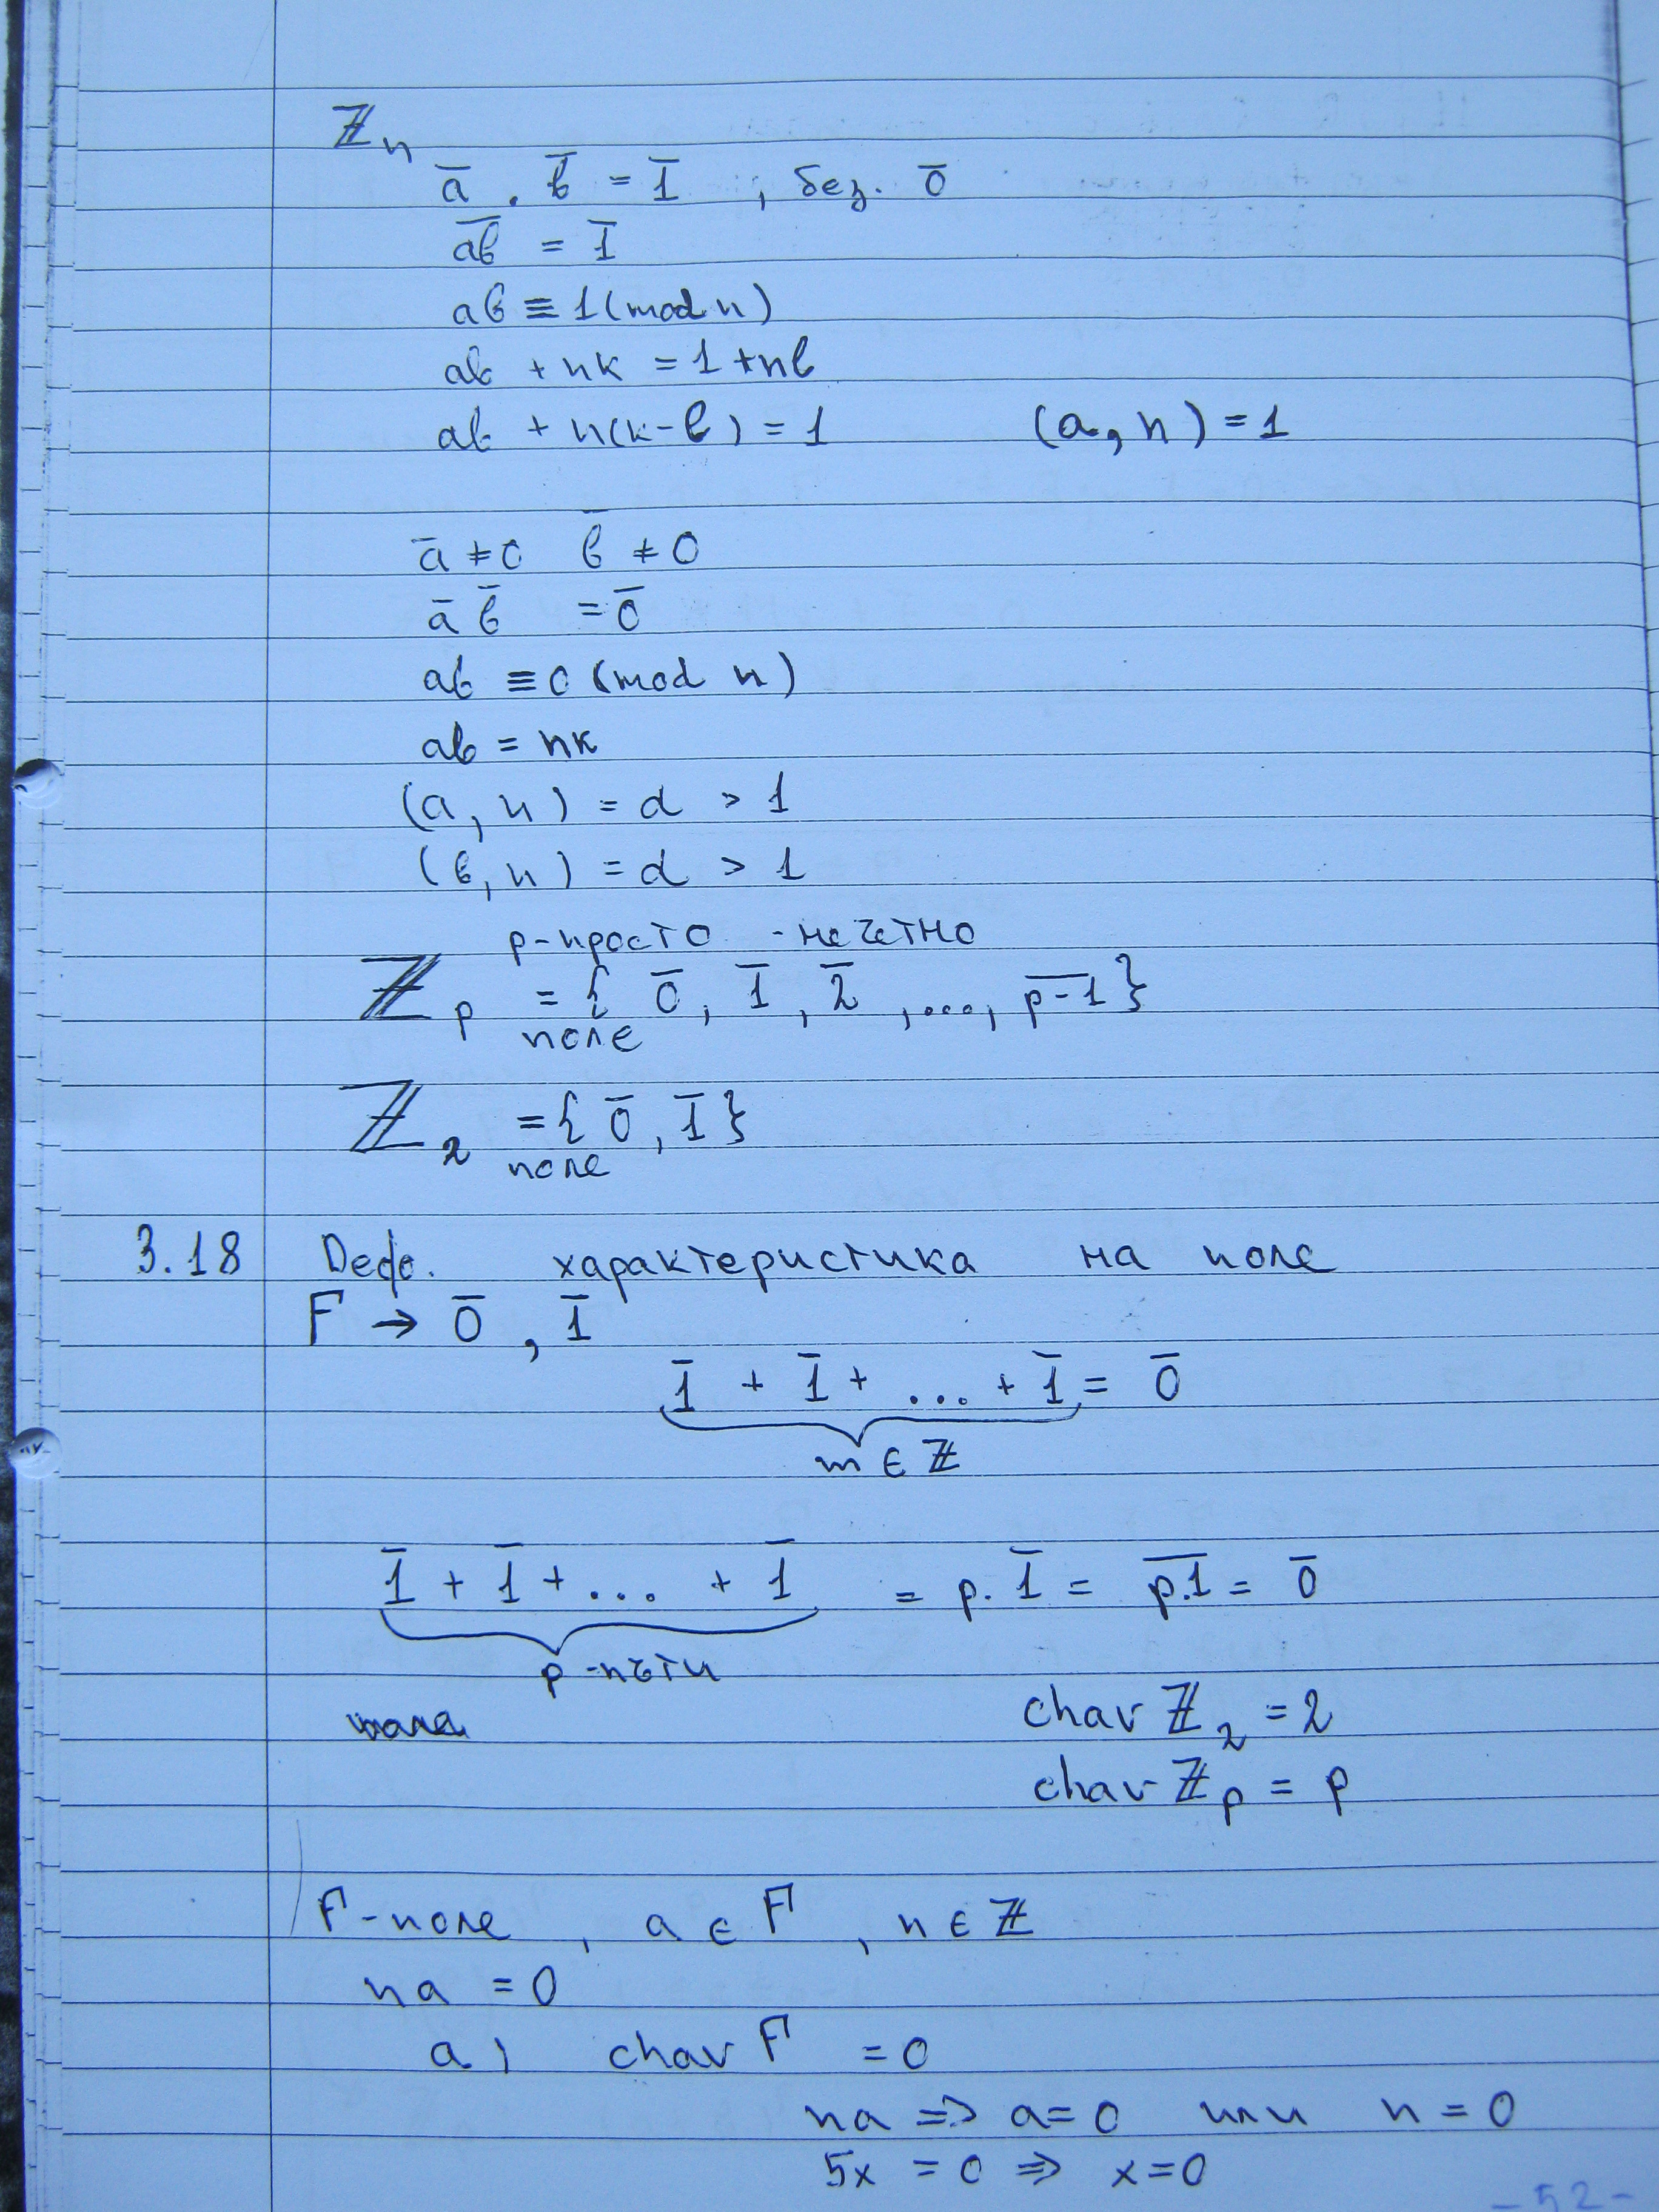 ℤn
ā . b̄ = 1̄ , без. 0̄
a̅b̅ = 1̄
ab ≡ 1 (mod n)
ab + nk = 1 + nl
ab + n(k-l) = 1 (a, n) = 1
ā ≠ 0 b̄ ≠ 0
ā b̄ = 0̄
ab ≡ 0 (mod n)
ab = nk
(a, n) = d > 1
(b, n) = d > 1
p-просто - нечетно
ℤp = { 0̄, 1̄, 2̄, ..., p̅-̅1̅ }
поле
ℤ2 = { 0̄, 1̄ }
поле
3.18 Деф. характеристика на поле
F → 0̄, 1̄
1̄ + 1̄ + ... + 1̄ = 0̄
m ∈ ℤ
1̄ + 1̄ + ... + 1̄ = p. 1̄ = p̅.̅1̅ = 0̄
p-пъти
char ℤ2 = 2
char ℤp = p
F-поле, a ∈ F, n ∈ ℤ
na = 0
a) char F = 0
na => a = 0 или n = 0
5x = 0 => x = 0
-52-